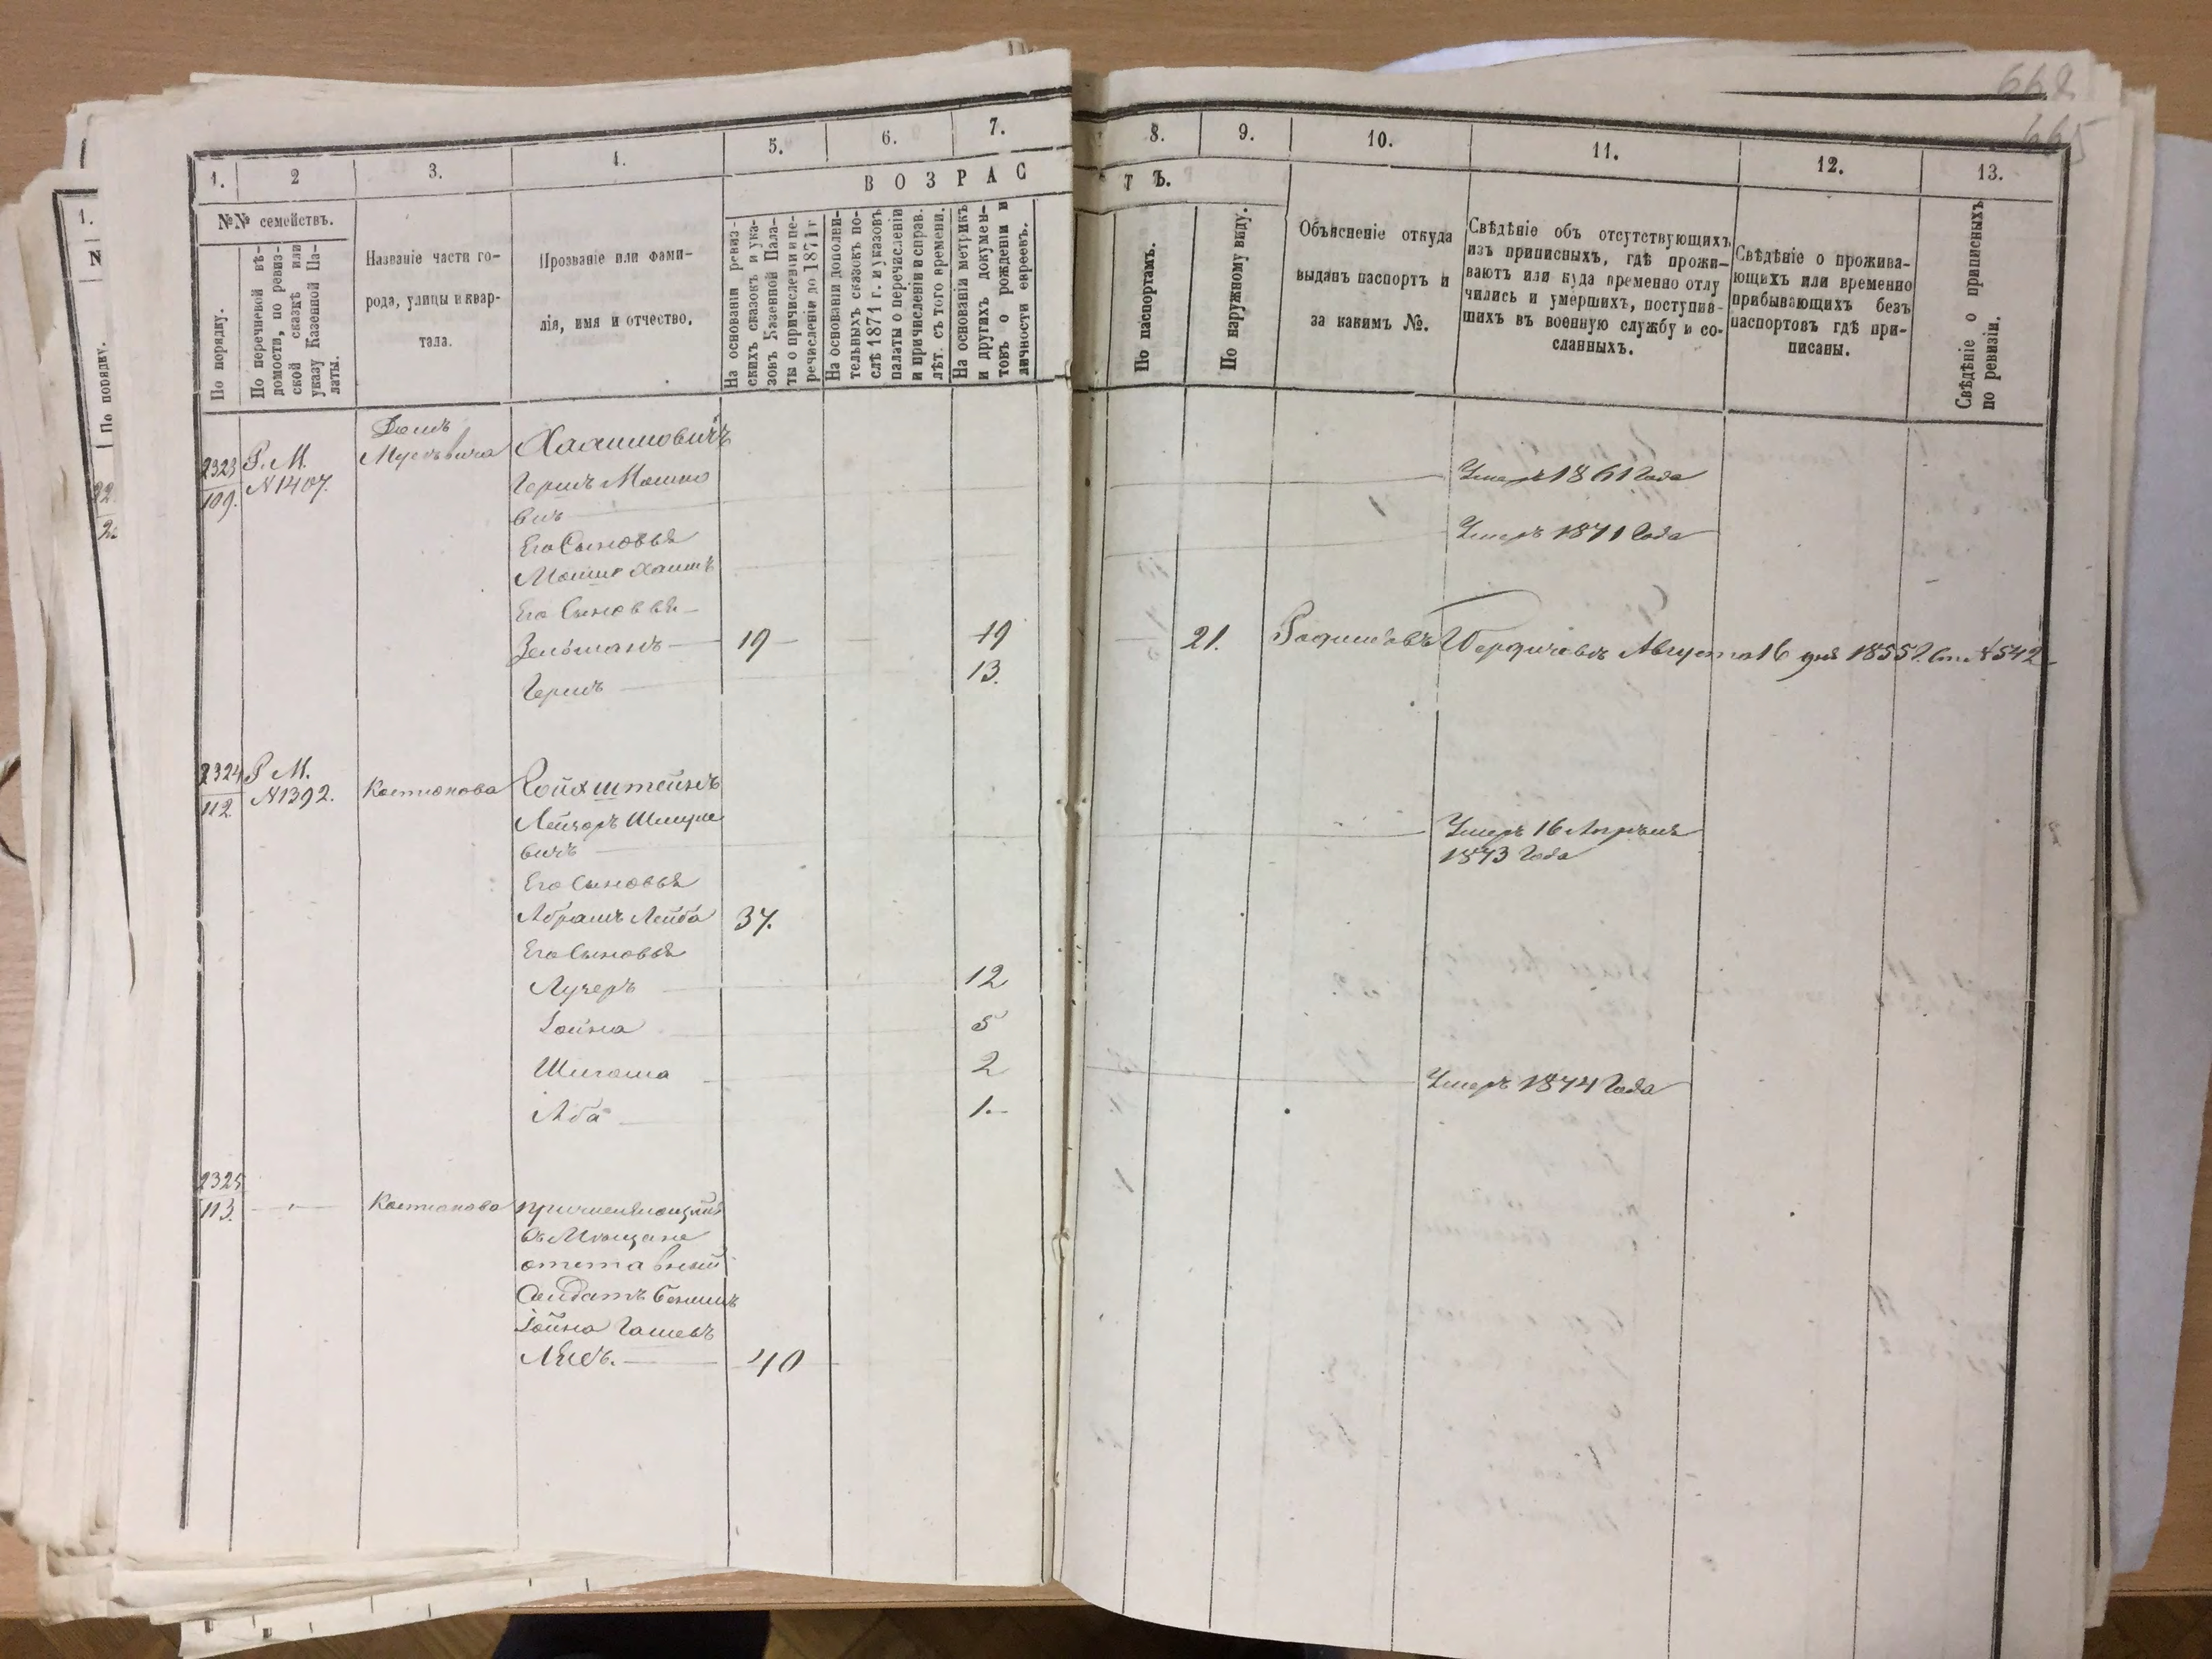 668
665
1.
N
По порядку.
1.
2
3.
4.
5.
6.
7.
8.
9.
10.
11.
12.
13.
№№ семействъ.
По порядку.
По перечневой вѣ-
домости, по ревиз-
ской сказкѣ или
указу Казенной Па-
латы.
Названіе части го-
рода, улицы и квар-
тала.
Прозваніе или фами-
лія, имя и отчество.
ВОЗРАС
ТЪ.
На основаніи ревиз-
скихъ сказокъ и ука-
зовъ Казенной Пала-
ты о причисленіи и пе-
речисленіи до 1871 г
На основаніи дополни-
тельныхъ сказокъ по-
слѣ 1871 г. и указовъ
палаты о перечисленіи
и причисленіи и справ.
лѣт. съ того времени.
На основаніи метрикъ
и другихъ докумен-
товъ о рожденіи и
личности евреевъ.
По паспортамъ.
По наружному виду.
Объясненіе откуда
выданъ паспортъ и
за какимъ №.
Свѣдѣніе объ отсутствующихъ
изъ приписныхъ, гдѣ прожи-
ваютъ или куда временно отлу
чились и умершихъ, поступив-
шихъ въ военную службу и со-
сланныхъ.
Свѣдѣніе о прожива-
ющихъ или временно
прибывающихъ безъ
паспортовъ гдѣ при-
писаны.
Свѣдѣніе о приписныхъ
по ревизіи.
2323
109.
Р. М.
N 1407.
Домъ
Хаимовичъ
Гершъ Мошко
вичъ
Умеръ 1861 Года
Его Сыновья
Мошко Хаимъ
Умеръ 1871 Года
Его Сыновья
Зельманъ 19 19 21. Бердичевъ Августа 16 дня 1855 г. N 542
Гершъ 13.
2324
112
Р М.
N 1392.
Костюкова
Ройхштейнъ
Лейзоръ Шмуле
вичъ
Умеръ 16 Апрѣля
1873 Года
Его Сыновья
Абрамъ Лейба 37.
Его Сыновья
Лузеръ 12
Іойна 5
Шигома 2 Умеръ 1874 Года
Аба 1.
2325
113.
Костюкова
причисляющійся
въ Мѣщане
отставной
Солдатъ
Іойна
40